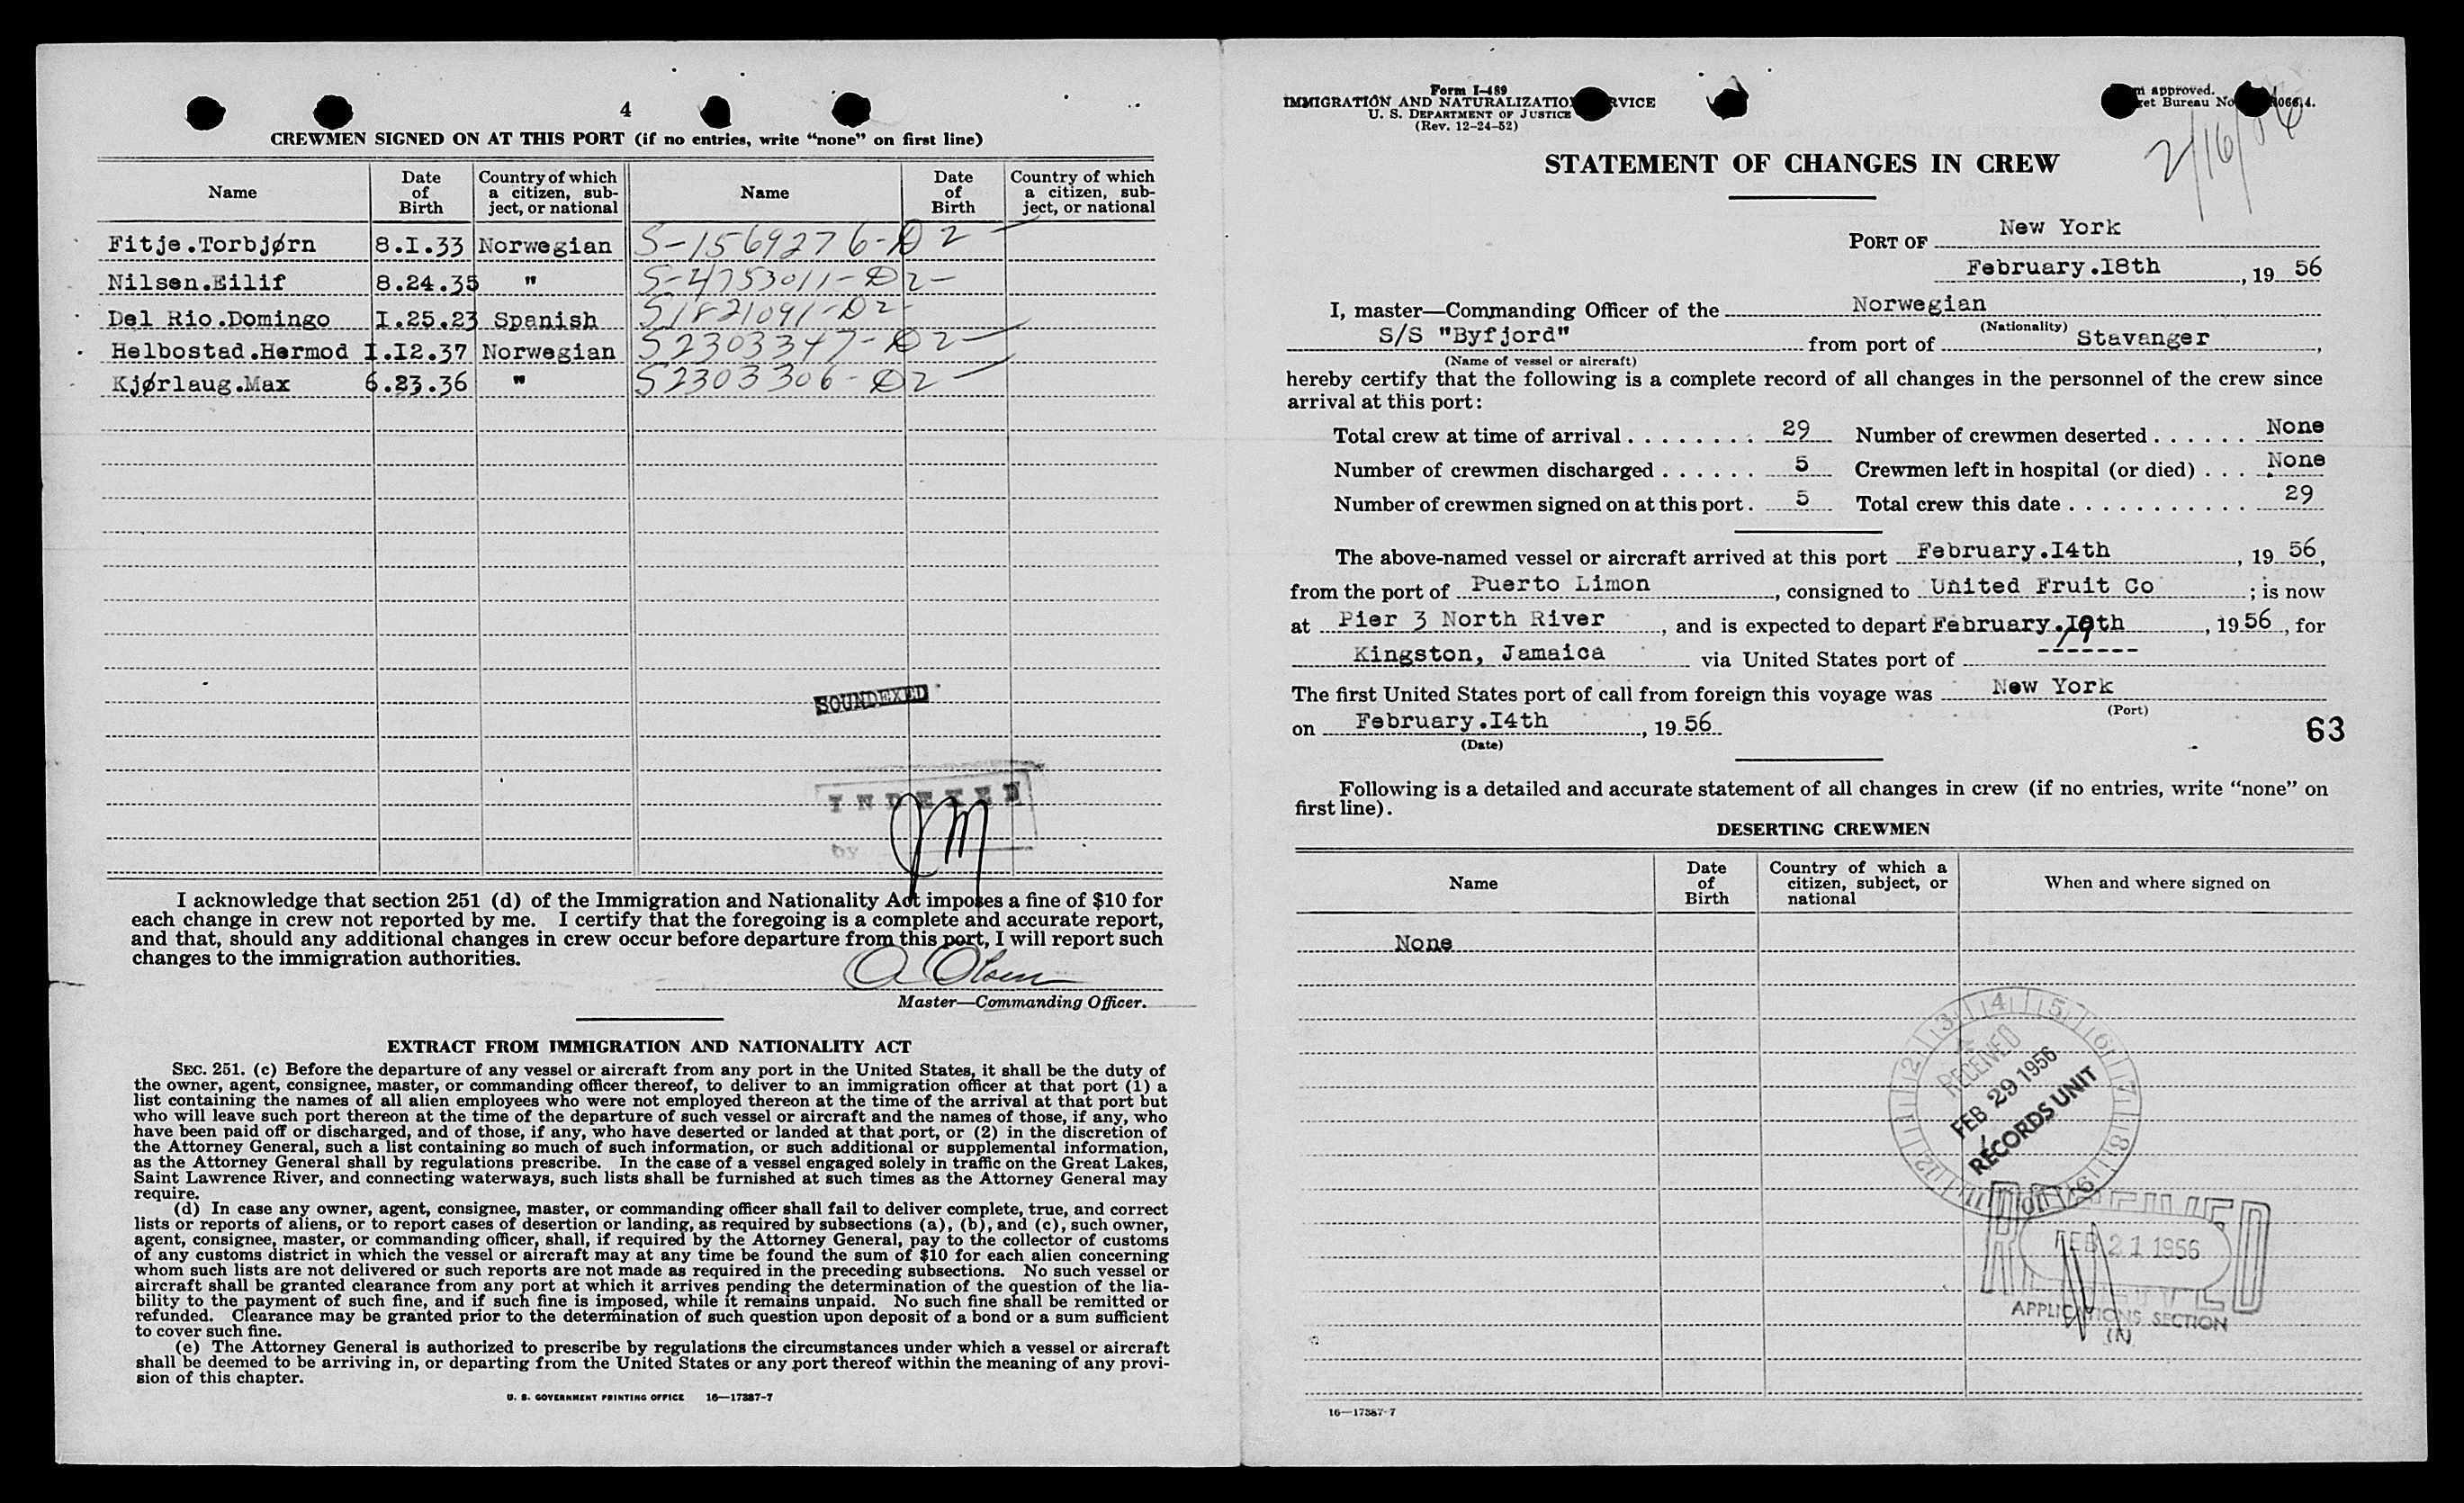 4
CREWMEN SIGNED ON AT THIS PORT (if no entries, write "none" on first line)
Name Date of Birth Country of which a citizen, subject, or national Name Date of Birth Country of which a citizen, subject, or national
Fitje.Torbjørn 8.I.33 Norwegian S-1569276-D2-
Nilsen.Eilif 8.24.35 " S-4753011-D2-
Del Rio.Domingo I.25.23 Spanish S1821091-D2-
Helbostad.Hermod I.I2.37 Norwegian S2303347-D2-
Kjørlaug.Max 6.23.36 " S2303306-D2-
SOUNDEXED
INDEXED
BY JM
I acknowledge that section 251 (d) of the Immigration and Nationality Act imposes a fine of $10 for
each change in crew not reported by me. I certify that the foregoing is a complete and accurate report,
and that, should any additional changes in crew occur before departure from this port, I will report such
changes to the immigration authorities.
A Olsen
Master—Commanding Officer.
EXTRACT FROM IMMIGRATION AND NATIONALITY ACT
SEC. 251. (c) Before the departure of any vessel or aircraft from any port in the United States, it shall be the duty of
the owner, agent, consignee, master, or commanding officer thereof, to deliver to an immigration officer at that port (1) a
list containing the names of all alien employees who were not employed thereon at the time of the arrival at that port but
who will leave such port thereon at the time of the departure of such vessel or aircraft and the names of those, if any, who
have been paid off or discharged, and of those, if any, who have deserted or landed at that port, or (2) in the discretion of
the Attorney General, such a list containing so much of such information, or such additional or supplemental information,
as the Attorney General shall by regulations prescribe. In the case of a vessel engaged solely in traffic on the Great Lakes,
Saint Lawrence River, and connecting waterways, such lists shall be furnished at such times as the Attorney General may
require.
(d) In case any owner, agent, consignee, master, or commanding officer shall fail to deliver complete, true, and correct
lists or reports of aliens, or to report cases of desertion or landing, as required by subsections (a), (b), and (c), such owner,
agent, consignee, master, or commanding officer, shall, if required by the Attorney General, pay to the collector of customs
of any customs district in which the vessel or aircraft may at any time be found the sum of $10 for each alien concerning
whom such lists are not delivered or such reports are not made as required in the preceding subsections. No such vessel or
aircraft shall be granted clearance from any port at which it arrives pending the determination of the question of the lia-
bility to the payment of such fine, and if such fine is imposed, while it remains unpaid. No such fine shall be remitted or
refunded. Clearance may be granted prior to the determination of such question upon deposit of a bond or a sum sufficient
to cover such fine.
(e) The Attorney General is authorized to prescribe by regulations the circumstances under which a vessel or aircraft
shall be deemed to be arriving in, or departing from the United States or any port thereof within the meaning of any provi-
sion of this chapter.
U. S. GOVERNMENT PRINTING OFFICE 16—17387-7
Form I-489
IMMIGRATION AND NATURALIZATION SERVICE
U. S. DEPARTMENT OF JUSTICE
(Rev. 12-24-52)
approved.
Bureau No
2/16/56
STATEMENT OF CHANGES IN CREW
PORT OF New York
February.I8th, 19 56
I, master—Commanding Officer of the Norwegian
(Nationality)
S/S "Byfjord" from port of Stavanger,
(Name of vessel or aircraft)
hereby certify that the following is a complete record of all changes in the personnel of the crew since
arrival at this port:
Total crew at time of arrival 29 Number of crewmen deserted None
Number of crewmen discharged 5 Crewmen left in hospital (or died) None
Number of crewmen signed on at this port 5 Total crew this date 29
The above-named vessel or aircraft arrived at this port February.I4th, 19 56,
from the port of Puerto Limon, consigned to United Fruit Co; is now
at Pier 3 North River, and is expected to depart February.19th, 19 56, for
Kingston, Jamaica via United States port of -------
The first United States port of call from foreign this voyage was New York
(Port)
on February.I4th, 19 56.
(Date)
63
Following is a detailed and accurate statement of all changes in crew (if no entries, write "none" on
first line).
DESERTING CREWMEN
Name Date of Birth Country of which a citizen, subject, or national When and where signed on
None
RECEIVED
FEB 29 1956
RECORDS UNIT
RECEIVED
FEB 21 1956
APPLICATIONS SECTION
16—17387-7